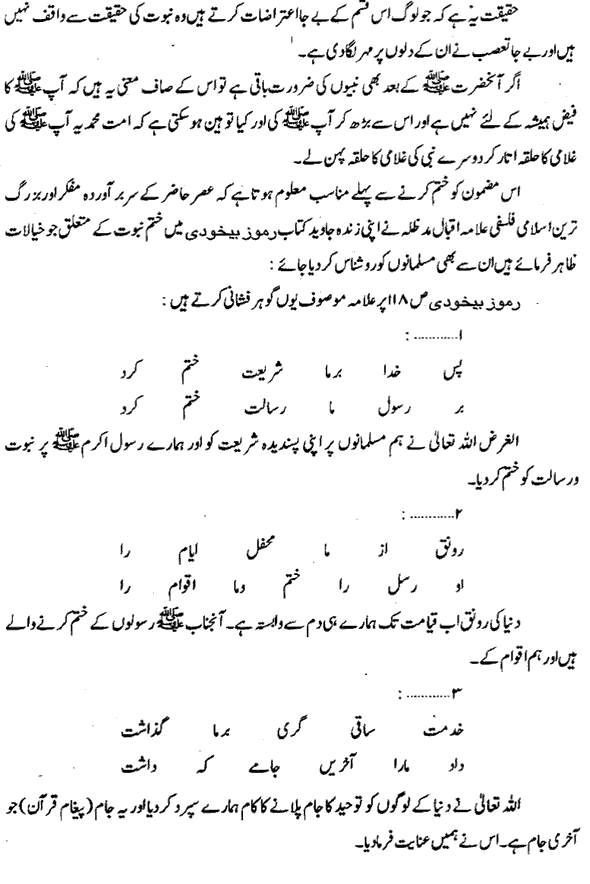 حقیقت یہ ہے کہ جو لوگ اس قسم کے بے جا اعتراضات کرتے ہیں وہ نبوت کی حقیقت سے واقف نہیں
ہیں اور بے جا تعصب نے ان کے دلوں پر مہر لگا دی ہے۔
اگر آنحضرت ﷺ کے بعد بھی نبیوں کی ضرورت باقی ہے تو اس کے صاف معنی یہ ہیں کہ آپ ﷺ کا
فیض ہمیشہ کے لئے نہیں ہے اور اس سے بڑھ کر آپ ﷺ کی اور کیا توہین ہو سکتی ہے کہ امت محمدیہ آپ ﷺ کی
غلامی کا حلقہ اتار کر دوسرے نبی کی غلامی کا حلقہ پہن لے۔
اس مضمون کو ختم کرنے سے پہلے مناسب معلوم ہوتا ہے کہ عصر حاضر کے سربرآوردہ مفکر اور بزرگ
ترین اسلامی فلسفی علامہ اقبال مدظلہ نے اپنی زندہ جاوید کتاب رموز بیخودی میں ختم نبوت کے متعلق جو خیالات
ظاہر فرمائے ہیں ان سے بھی مسلمانوں کو روشناس کر دیا جائے :
رموز بیخودی ص ۱۱۸ پر علامہ موصوف یوں گوہر فشانی کرتے ہیں :
۱........... :
پس خدا برما شریعت ختم کرد
بر رسول ما رسالت ختم کرد
الغرض اللہ تعالیٰ نے ہم مسلمانوں پر اپنی پسندیدہ شریعت کو اور ہمارے رسول اکرم ﷺ پر نبوت
و رسالت کو ختم کر دیا۔
۲........... :
رونق از ما محفل ایام را
او رسل را ختم وما اقوام را
دنیا کی رونق اب قیامت تک ہمارے ہی دم سے وابستہ ہے۔ آنجناب ﷺ رسولوں کے ختم کرنے والے
ہیں اور ہم اقوام کے۔
۳........... :
خدمت ساقی گری برما گذاشت
داد مارا آخریں جامے کہ داشت
اللہ تعالیٰ نے دنیا کے لوگوں کو توحید کا جام پلانے کا کام ہمارے سپرد کر دیا اور یہ جام (پیغام قرآن) جو
آخری جام ہے۔ اس نے ہمیں عنایت فرما دیا۔